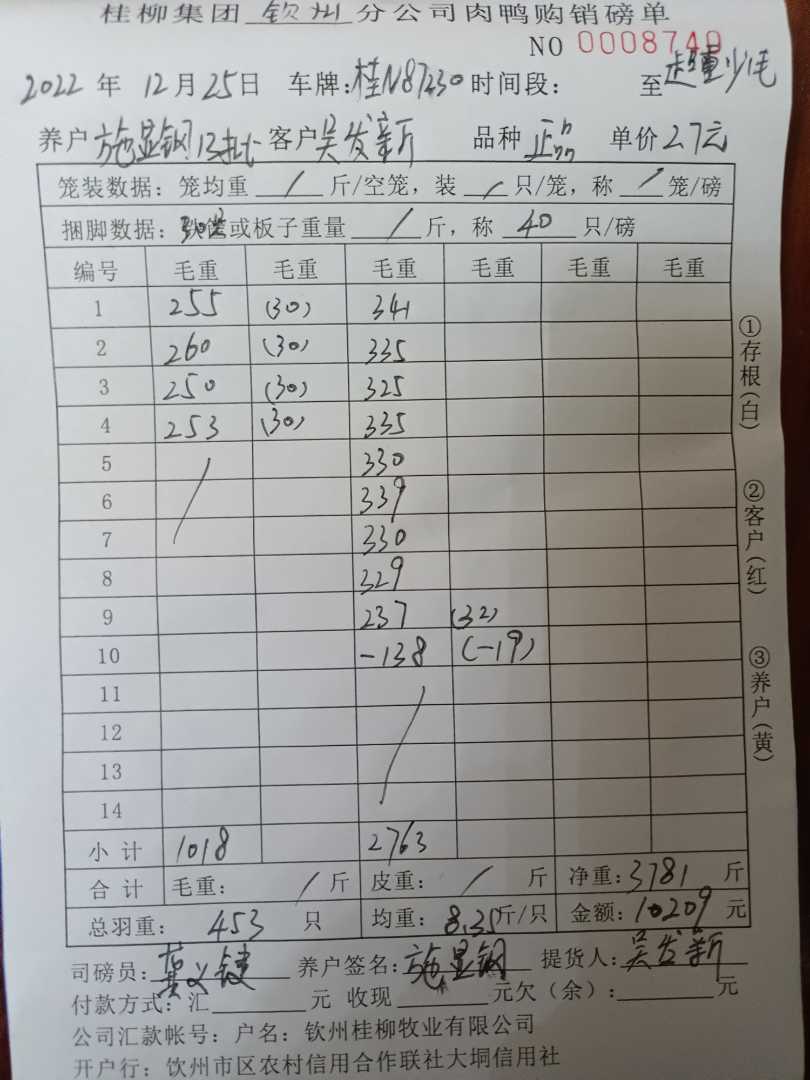 桂柳集团 钦州 分公司肉鸭购销磅单
NO 0008740
2022 年 12月25日 车牌:桂N87230 时间段: 至 超重少毛
养户 施显钢13批 客户 吴发新 品种 正品 单价 2.7元
笼装数据: 笼均重 / 斤/空笼, 装 / 只/笼, 称 / 笼/磅
捆脚数据: 或板子重量 / 斤, 称 40 只/磅
编号 毛重 毛重 毛重 毛重 毛重 毛重
1 255 (30) 341
2 260 (30) 335
3 250 (30) 325
4 253 (30) 335
5 / 330
6 339
7 330
8 329
9 237 (32)
10 -138 (-19)
11 /
12
13
14
小计 1018 2763
合计 毛重: / 斤 皮重: / 斤 净重: 3781 斤
总羽重: 453 只 均重: 8.35斤/只 金额: 10209 元
司磅员: 养户签名: 施显钢 提货人: 吴发新
付款方式: 汇 元 收现 元欠(余): 元
公司汇款帐号: 户名: 钦州桂柳牧业有限公司
开户行: 钦州市区农村信用合作联社大垌信用社
①存根(白)
②客户(红)
③养户(黄)